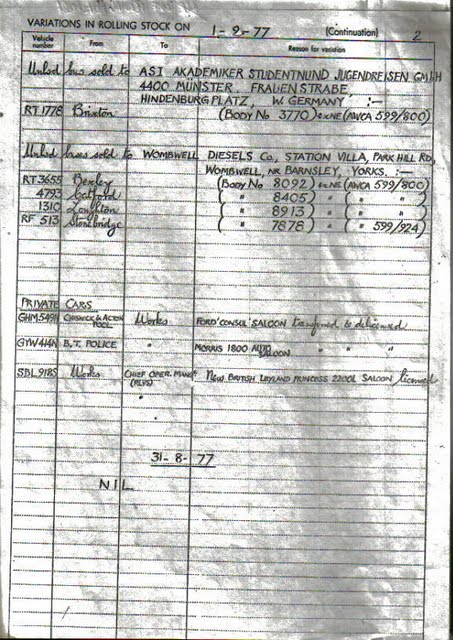 VARIATIONS IN ROLLING STOCK ON 1-9-77 (Continuation) 2
Vehicle number From To Reason for variation
Unlsd bus sold to ASI AKADEMIKER STUDENTNUND JUGENDREISEN GMBH
4400 MUNSTER, FRAUENSTRABE,
HINDENBURGPLATZ, W. GERMANY :—
RT 1778 Brixton (BODY No 3770) exNE (AWCA 599/800)
Unlsd buses sold to WOMBWELL DIESELS Co., STATION VILLA, PARK HILL RD,
WOMBWELL, NR BARNSLEY, YORKS. :—
RT 3655 Bexley (BODY No 8092) exNE (AWCA 599/800)
4793 Catford ( " 8405) " ( " " )
1310 Loughton ( " 8913) " ( " " )
RF 513 Stonebridge ( " 7878) " ( " 599/924)
PRIVATE CARS
CHISWICK & ACTON POOL Works FORD CONSUL SALOON transferred & delicensed
GYW 441N B.T. POLICE " MORRIS 1800 AUTO SALOON " " "
SBL 918S Works CHIEF OPER. MANGR (RLYS) NEW BRITISH LEYLAND PRINCESS 2200L SALOON licensed
"
"
31-8-77
NIL